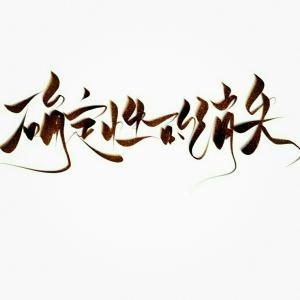 确定性的消失